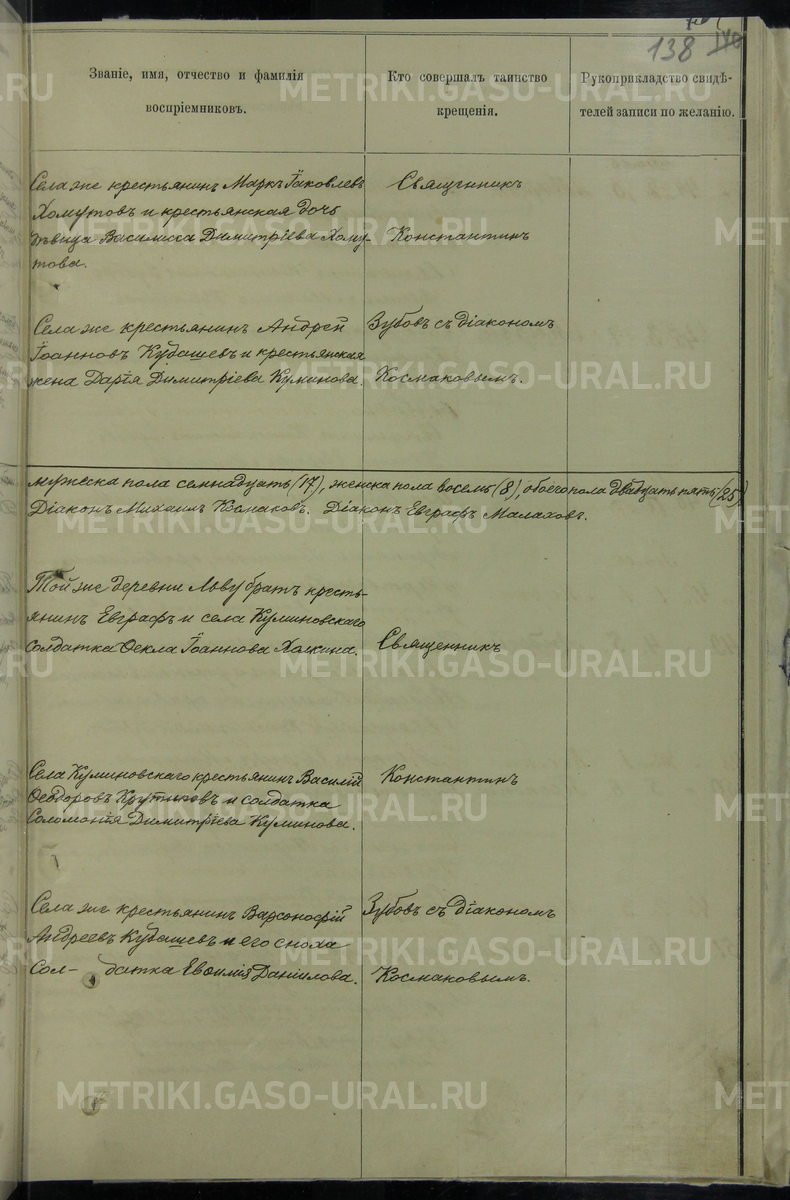 138
Званіе, имя, отчество и фамилія
воспріемниковъ.
Кто совершалъ таинство
крещенія.
Рукоприкладство свидѣ-
телей записи по желанію.
Села же крестьянинъ Маркъ Іаковлевъ
Хомутовъ и крестьянская дочь
дѣвица Василисса Димитріева Хому-
това.
Священникъ
Константинъ
Села же крестьянинъ Андрей
Іоанновъ Кубашевъ и крестьянская
жена Дарія Димитріева Куминова.
Зубовъ съ діакономъ
Космаковымъ.
мужеска пола семнадцать (17), женска пола восемь (8), обоего пола двадцать пять (25)
Діаконъ Михаилъ Космаковъ. Діаконъ Евграфъ Малаховъ.
Той же деревни Льву братъ кресть-
янинъ Евграфъ и села Куминовскаго
солдатка Ѳекла Іоаннова Халкина.
Священникъ
Села Куминовскаго крестьянинъ Василій
Ѳеодоровъ Крутиковъ и солдатка
Соломонія Димитріева Куминова.
Константинъ
Села же крестьянинъ Варсонофій
Андреевъ Кубашевъ и его сноха
Сол- датка Евѳимія Даніилова.
Зубовъ съ діакономъ
Космаковымъ.
METRIKI.GASO-URAL.RU